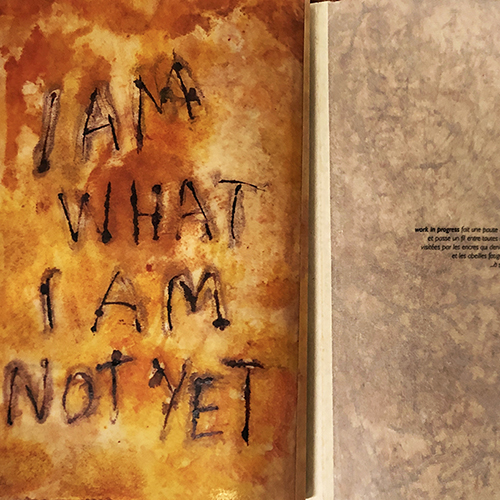 I AM
WHAT
I AM
NOT YET
work in progress fait une pause
et passe un fil entre toutes
visitées par les encres qui
et les abeilles